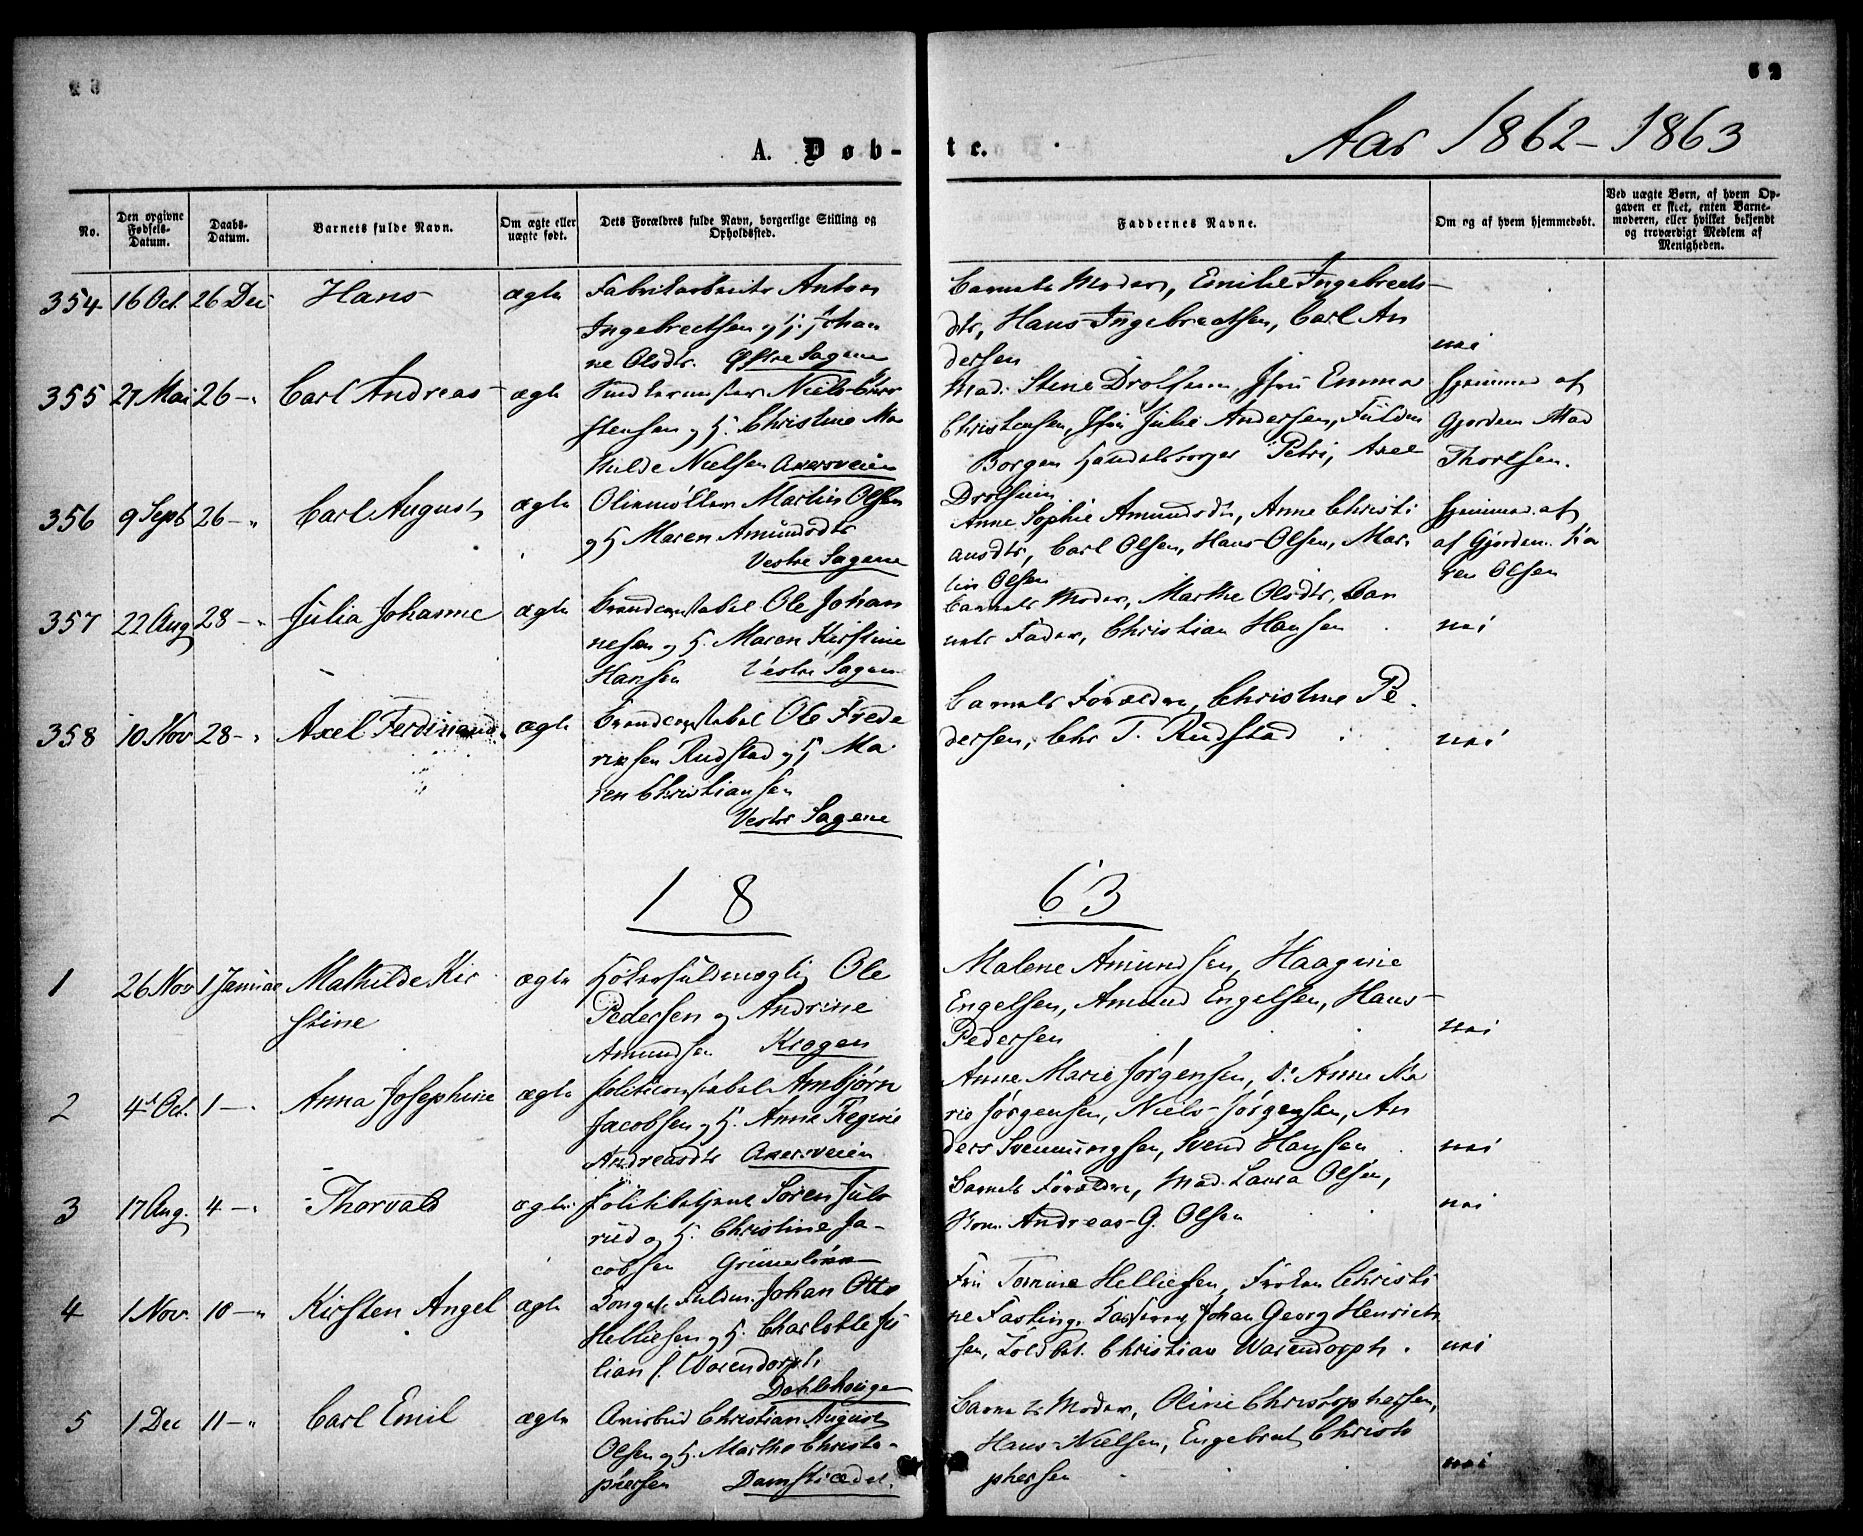 62
A. Døb-
te.
Aar 1862-1863
No.
Den opgivne Fødsels-Datum.
Daabs-Datum.
Barnets fulde Navn.
Om ægte eller uægte født.
Dets Forældres fulde Navn, borgerlige Stilling og Opholdssted.
Faddernes Navne.
Om og af hvem hjemmedøbt.
Ved uægte Børn, af hvem Opgaven er skeet, enten Barnemoderen, eller hvilket bekjendt og troværdigt Medlem af Menigheden.
354 16 Oct. 26 Dec Hans ægte
Fabrikarbeider Anton
Ingebrectsen og H. Johan
ne Olsdtr. Østre Sagene
Barnets Moder, Emilie Ingebrects-
dtr, Hans Ingebrectsen, Carl An
dersen
nei
355 27 Mai 26 -" Carl Andreas ægte
Niels Chri
stensen og H. Christine Ma
thilde Nielsen Akersveien
Mad. Stine Drolsum, Jfru Emma
Christensen, Jfru Julie Andersen, Fuldm
Borgen Handelsborger Petri, Axel
Drolsum
Hjemmed af
Gjordem Mad
Thorlsen.
356 9 Sept 26 -" Carl August ægte
Oliemøller Martin Olsen
og H Maren Amundsdtr
Vestre Sagene
Anne Sophie Amundsdtr, Anne Christi
ansdtr, Carl Olsen, Hans Olsen, Mar-
tin Olsen
Hjemmed. af
af Gjordem. Ka
ren Olsen
357 22 Aug 28 -" Julia Johanne ægte
Brandconstabel Ole Johan
nesen og H. Maren Kirstine
Hansen Vestre Sagene
Barnets Moder, Marthe Olsdtr, Bar
nets Fader, Christian Hansen
nei
358 10 Nov 28 -" Axel Ferdinand ægte
Brandconstabel Ole Frede
riksen Rudstad og H Ma
ren Christiansen
Vestre Sagene
Barnets Forældre, Christine Pe
dersen, Chr T. Rudstad
nei
18 63
1 26 Nov 1 Januar Mathilde Kir
stine
ægte
Høkerfuldmægtig Ole
Pedersen og Andrine
Amundsen Krogen
Malene Amundsen, Haagine
Engelsen, Amund Engelsen, Hans
Pedersen
nei
2 4de Oct. 1 -" Anna Josephine ægte
Politiconstabel Arnbjørn
Jacobsen og H. Anne Regine
Andreasdtr Akersveien
Anne Marie Jørgensen, D. Anne Ma
rie Jørgensen, Niels Jørgensen, An
ders Svenningsen, Svend Hansen
nei
3 17 Aug. 4 -" Thorvald ægte
Politibetjent Søren Juls
rud og H. Christine Ja-
cobsen Grünerløkken
Barnets Forældre, Mad. Laura Olsen,
Kom. Andreas G. Olsen
nei
4 1 Nov. 10 -" Kirsten Angel ægte
Kongel. Fuldm. Johan Otto
Helliesen og H. Charlotte Ju
lian f. Warendorph
Dahlehougen
Fru Tomine Helliesen, Frøken Christi
ne Fasting, Kasserer Johan Georg Henrich
sen, Toldbet. Christian Warendorph.
nei
5 1 Dec 11 -" Carl Emil ægte
Avisbud Christian August
Olsen og H. Marthe Christo-
phersen Damstrædet.
Barnets Moder, Oline Christophersen,
Hans Nielsen, Engebret Christo
phersen
nei